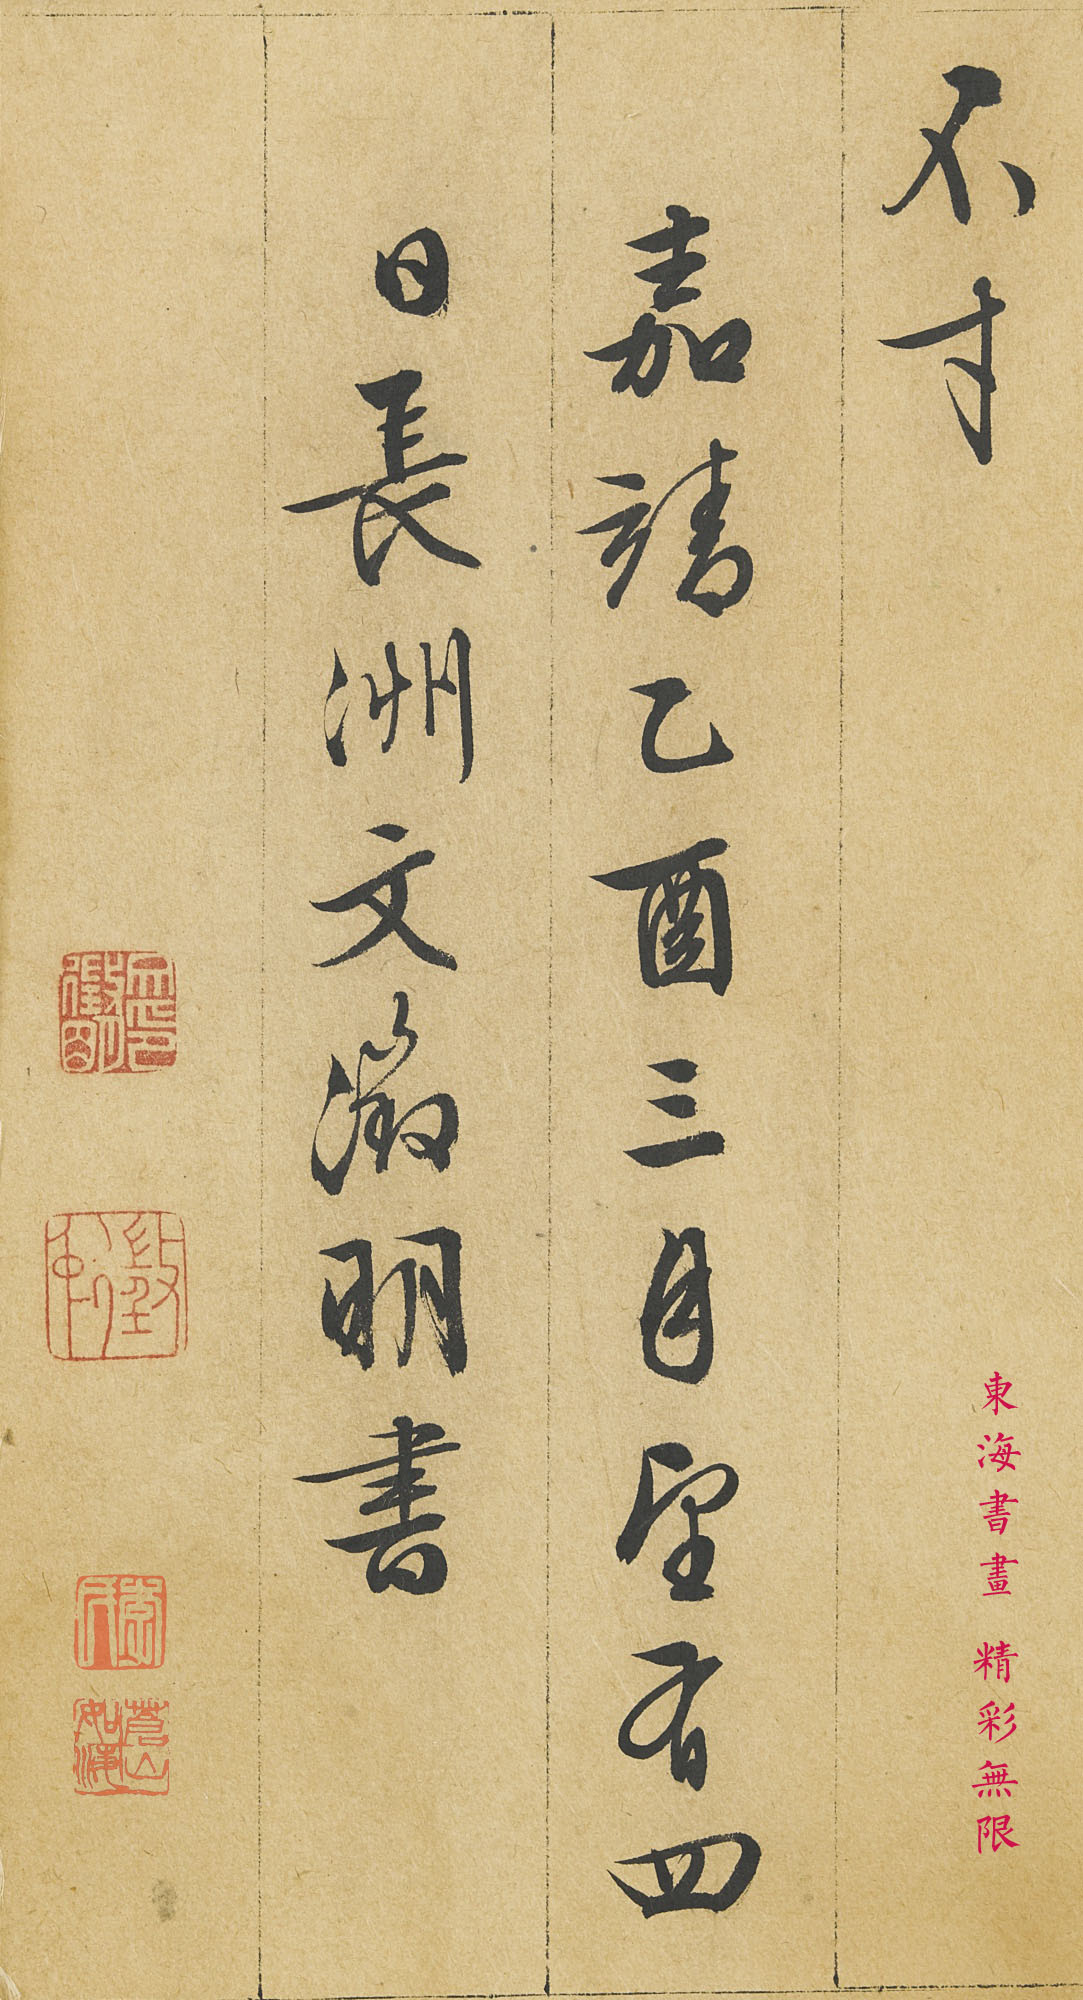 不才
嘉靖乙酉三月望有四
日長洲文徵明書
東海書畫 精彩無限